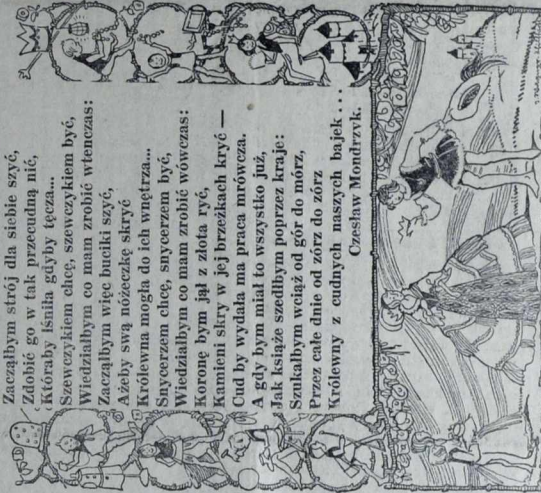 Zacząłbym strój dla siebie szyć,
Zdobić go w tak przecudną nić,
Któraby lśniła gdyby tęcza...
Szewczykiem chcę, szewczykiem być,
Wiedziałbym co mam zrobić wtenczas:
Zacząłbym więc buciki szyć,
Ażeby swą nóżeczkę skryć
Królewna mogła do ich wnętrza...
Snycerzem chcę, snycerzem być,
Wiedziałbym co mam zrobić wówczas:
Koronę bym jął z złota ryć,
Kamieni skry w jej brzeżkach kryć —
Cud by wydała ma praca mrówcza.
A gdy bym miał to wszystko już,
Jak książe szedłbym poprzez kraje:
Szukałbym wciąż od gór do mórz,
Przez całe dnie od zórz do zórz
Królewny z cudnych naszych bajek...
Czesław Mondrzyk.